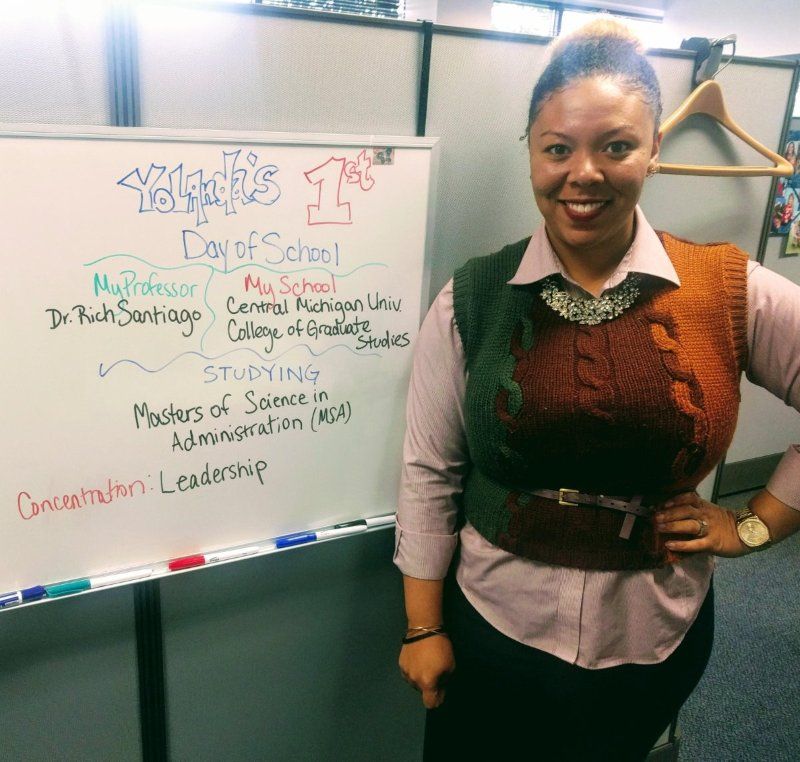 Yolanda's 1st
Day of School
My Professor
Dr. Rich Santiago
My School
Central Michigan Univ.
College of Graduate
Studies
STUDYING
Masters of Science in
Administration (MSA)
Concentration: Leadership